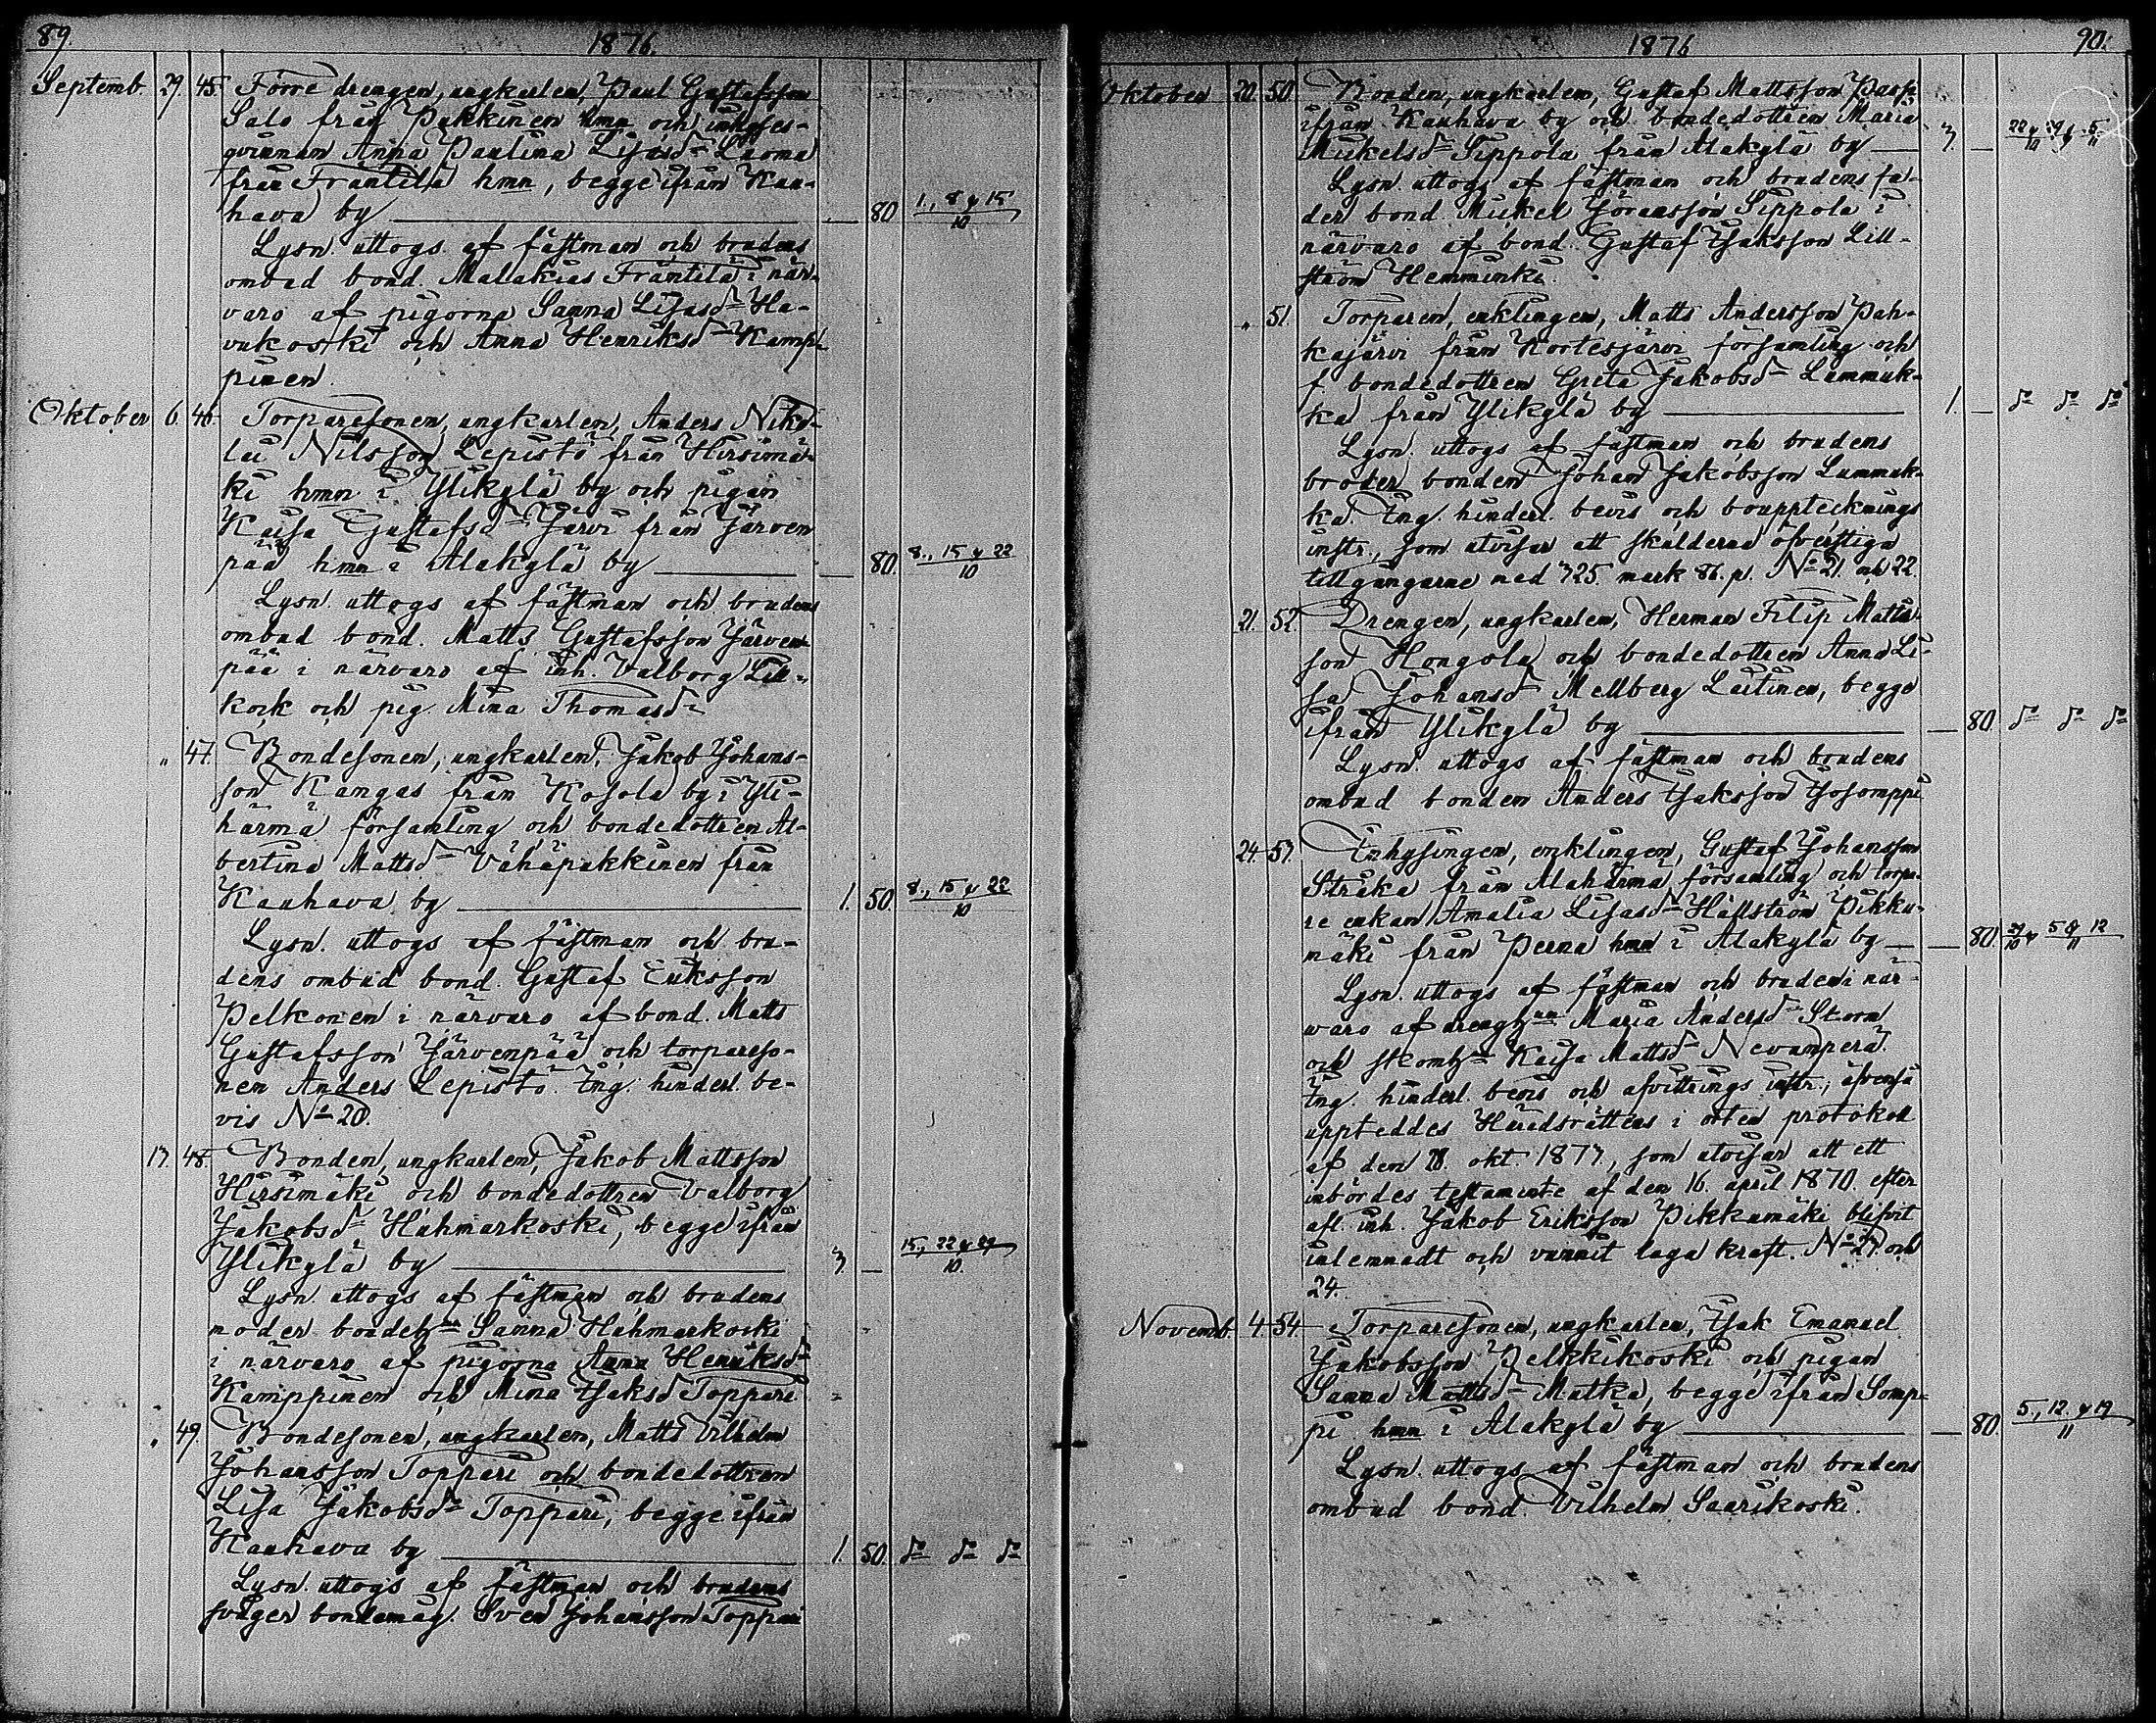 89.
1876.
Septemb. 29. 45. Förre drengen, ungkarlen, Paul Gustafsson
Salo från Pukkinen hmn och inhyses-
qvinnan Anna Paulina Lisasdr Luoma
från Frantila hmn, begge ifrån Kau-
hava by — 80 1., 8 & 15/10
Lysn. uttogs af fästman och brudens
ombud bond. Malakias Frantila i när-
varo af pigorna Sanna Lisasdr Ha-
vukoski och Anna Henriksdr Kamp-
pinen.
Oktober 6. 46. Torparesonen, ungkarlen, Anders Niko-
lai Nilsson Lepistö från Hirsimä-
ki hmn i Ylikylä by och pigan
Kaisa Gustafsdr Järvi från Järven
pää hmn i Alakylä by — 80. 8., 15 & 22/10
Lysn. uttogs af fästman och brudens
ombud bond. Matts Gustafsson Järven-
pää i närvaro af inh. Valborg Lill-
kock och pig. Mina Thomasdr
" 47. Bondesonen, ungkarlen, Jakob Johans-
son Kangas från Kosola by i Yli-
härmä församling och bondedottren Al-
bertina Mattsdr Vähäpakkinen från
Kauhava by — 1. 50. 8., 15 & 22/10
Lysn. uttogs af fästman och bru-
dens ombud bond. Gustaf Eriksson
Pelkonen i närvaro af bond. Matts
Gustafsson Järvenpää och torpareso-
nen Anders Lepistö. Ing. hinderl. be-
vis No 20.
13. 48. Bonden, ungkarlen, Jakob Mattsson
Hirsimäki och bondedottren Valborg
Jakobsdr Hahmarkoski, begge ifrån
Ylikylä by — 3. — 15., 22 & 29/10.
Lysn. uttogs af fästman och brudens
moder bondeh:un Sanna Hahmarkoski
i närvaro af pigorna Anna Henriksdr
Kamppinen och Mina Isaksdr Toppari
" 49. Bondesonen, ungkarlen, Matts Vilhelm
Johansson Toppari och bondedottren
Lisa Jakobsdr Toppari, begge ifrån
Kauhava by — 1. 50. do do do
Lysn. uttogs af fästman och brudens
svåger bondemåg. Sven Johansson Toppari
1876
90.
Oktober 20. 50. Bonden, ungkarlen, Gustaf Mattsson
ifrån Kauhava by och bondedottren Maria
Mickelsdr Sippola från Alakylä by — 3. — 22 & 29/10 & 5/11
Lysn. uttogs af fästman och brudens fa-
der bond. Mickel Göransson Sippola i
närvaro af bond. Gustaf Isaksson Lill-
ström Hemminki.
" 51. Torparen, enklingen, Matts Andersson Pah-
kajärvi från Kortesjärvi församling och
f. bondedottren Greta Jakobsdr Lammuk-
ka från Ylikylä by — 1. — do do do
Lysn. uttogs af fästman och brudens
broder bonden Johan Jakobsson Lammuk-
ka. Ing. hinderl. bevis och boupptecknings
instr., som utvisar att skulderna öfverstiga
tillgångarne med 325 mark 86. p. No 21. och 22.
21. 52. Drengen, ungkarlen, Herman Filip Matts-
son Hongola och bondedottren Anna Li-
sa Johansdr Mellberg Laitinen, begge
ifrån Ylikylä by — 80. do do do
Lysn. uttogs af fästman och brudens
ombud bonden Anders Isaksson Isosomppi
24. 53. Inhysingen, enklingen, Gustaf Johansson
Straka från Alahärmä församling och torpa-
re enkan Amalia Lisasdr Hällström Pikku-
mäki från Perna hmn i Alakylä by — 80. 29/10 & 5 & 12/11
Lysn. uttogs af fästman och bruden i när-
varo af drengh:un Maria Andersdr Storm
och Kaisa Mattsdr Nevanperä.
Ing. hinderl. bevis och afvittrings instr., äfvenså
uppteddes Häradsrättens i orten protokoll
af den okt. 1873, som utvisar att ett
inbördes testamente af den 16. april 1870 efter
afl. inh. Jakob Eriksson Pikkumäki blifvit
inlemnadt och vunnit laga kraft. No 23. och
24.
Novemb. 4. 54. Torparesonen, ungkarlen, Isak Emanuel
Jakobsson Pelkkikoski och pigan
Sanna Mattsdr Matka, begge ifrån Somp-
pi hmn i Alakylä by — 80. 5., 12. & 19/11
Lysn. uttogs af fästman och brudens
ombud bond. Vilhelm Saarikoski.